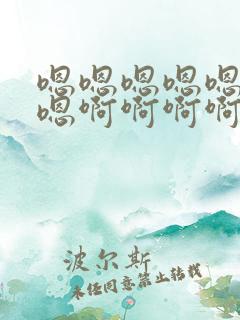 嗯嗯嗯嗯嗯
嗯啊啊啊啊
波尔斯
未经同意禁止转载